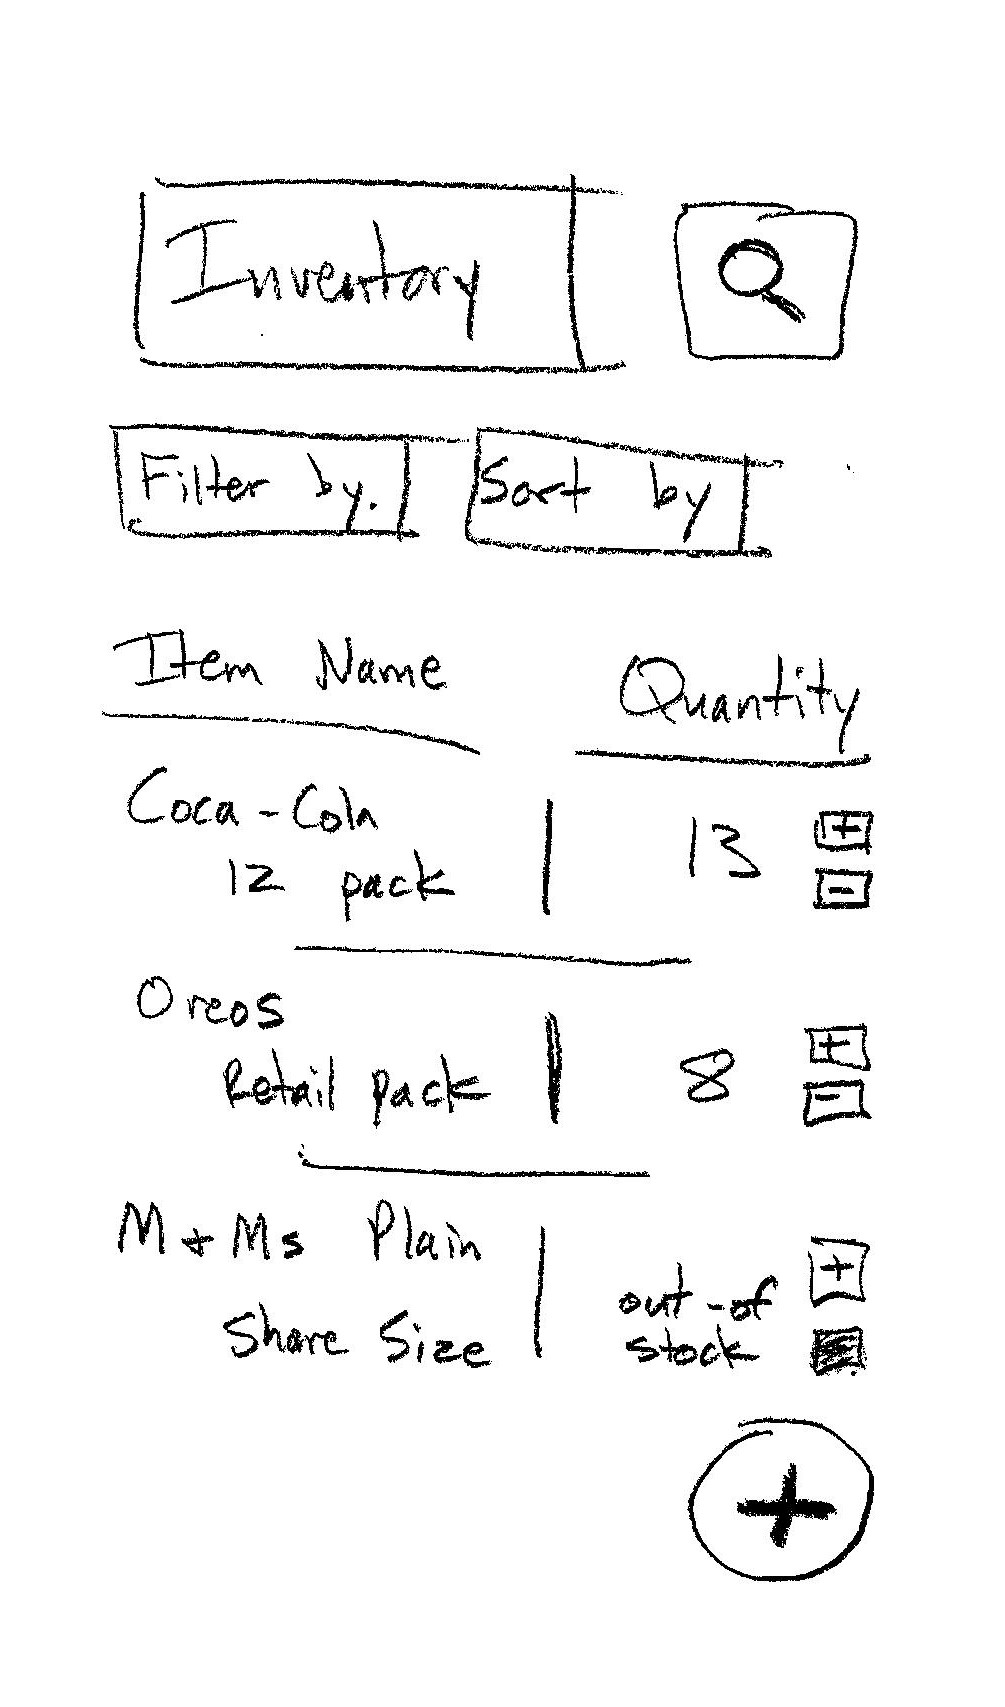 Inventory
Filter by.
Sort by
Item Name
Quantity
Coca-Cola
12 pack
13
+
-
Oreos
Retail pack
8
+
-
M+Ms Plain
Share Size
out-of
stock
+
+